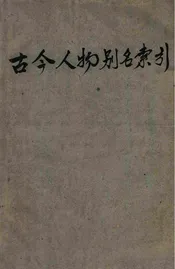 古今人物别名索引